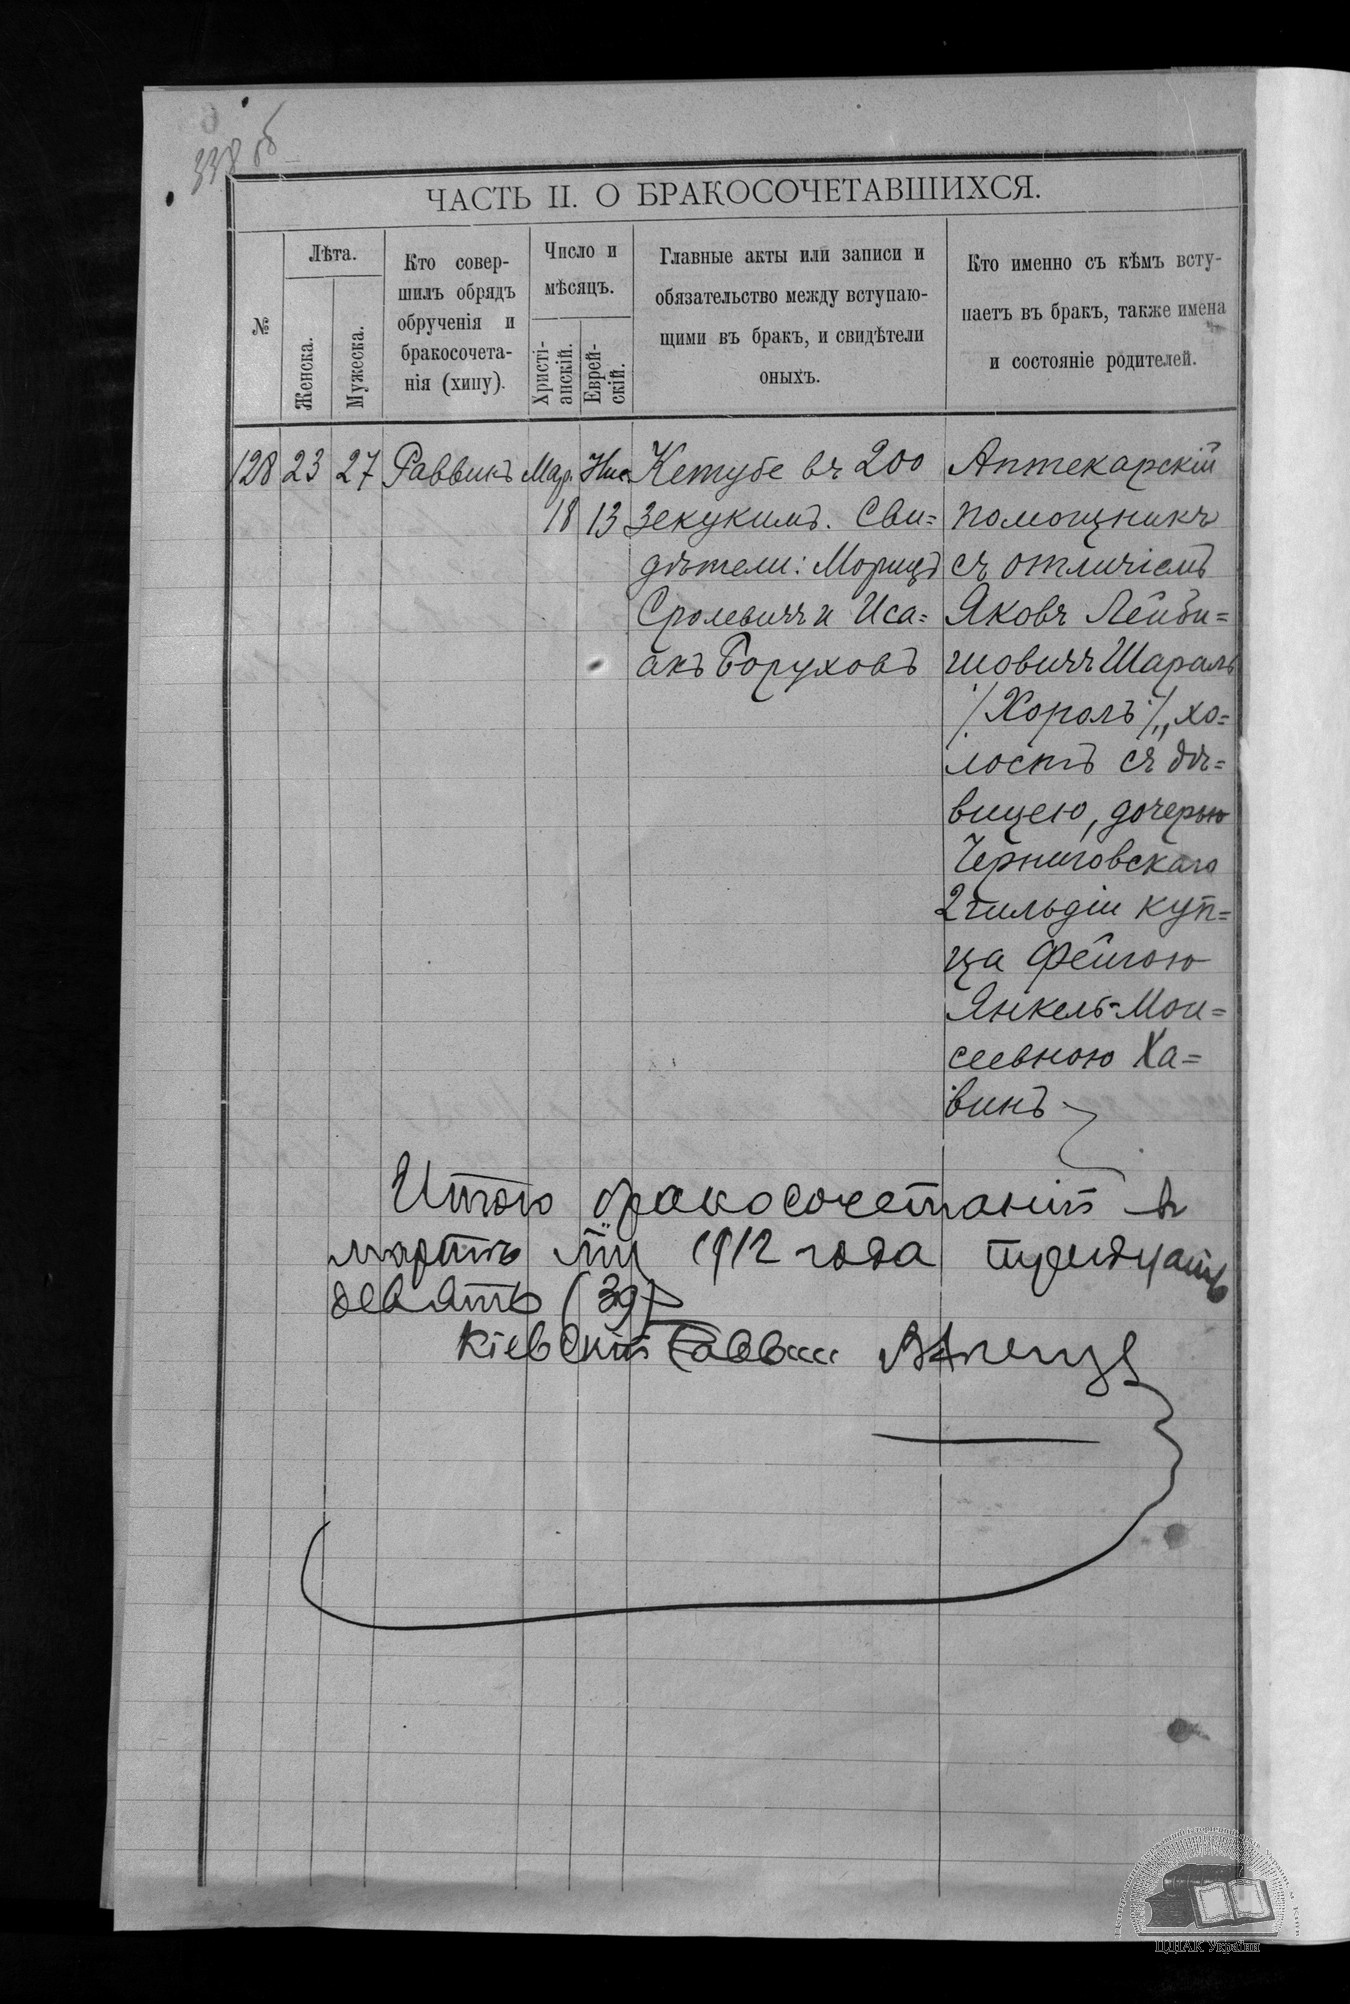 338 об
ЧАСТЬ II. О БРАКОСОЧЕТАВШИХСЯ.
№
Лѣта.
Женска.
Мужеска.
Кто совер-
шилъ обрядъ
обрученія и
бракосочета-
нія (хипу).
Число и
мѣсяцъ.
Христі-
анскій.
Еврей-
скій.
Главные акты или записи и
обязательство между вступаю-
щими въ бракъ, и свидѣтели
оныхъ.
Кто именно съ кѣмъ всту-
паетъ въ бракъ, также имена
и состояніе родителей.
128 23 27 Раввинъ Мар. Нис.
18 13
Кетубе въ 200
зекукимъ. Сви=
дѣтели: Морицъ
Сролевичъ и Иса=
акъ Боруховъ
Аптекарскій
помощникъ
съ отличіемъ
Яковъ Лейби=
шовичъ Шараль
/Хороль/, хо=
лостъ съ дѣ=
вицею, дочерью
Черниговскаго
2 гильдіи куп=
ца Фейгою
Янкель-Мои=
сеевною Ха=
винъ
Итого бракосочетаній въ
мартѣ м-цѣ 1912 года тридцать
девять (39)
Кіевскій Раввин
ЦДІАК України